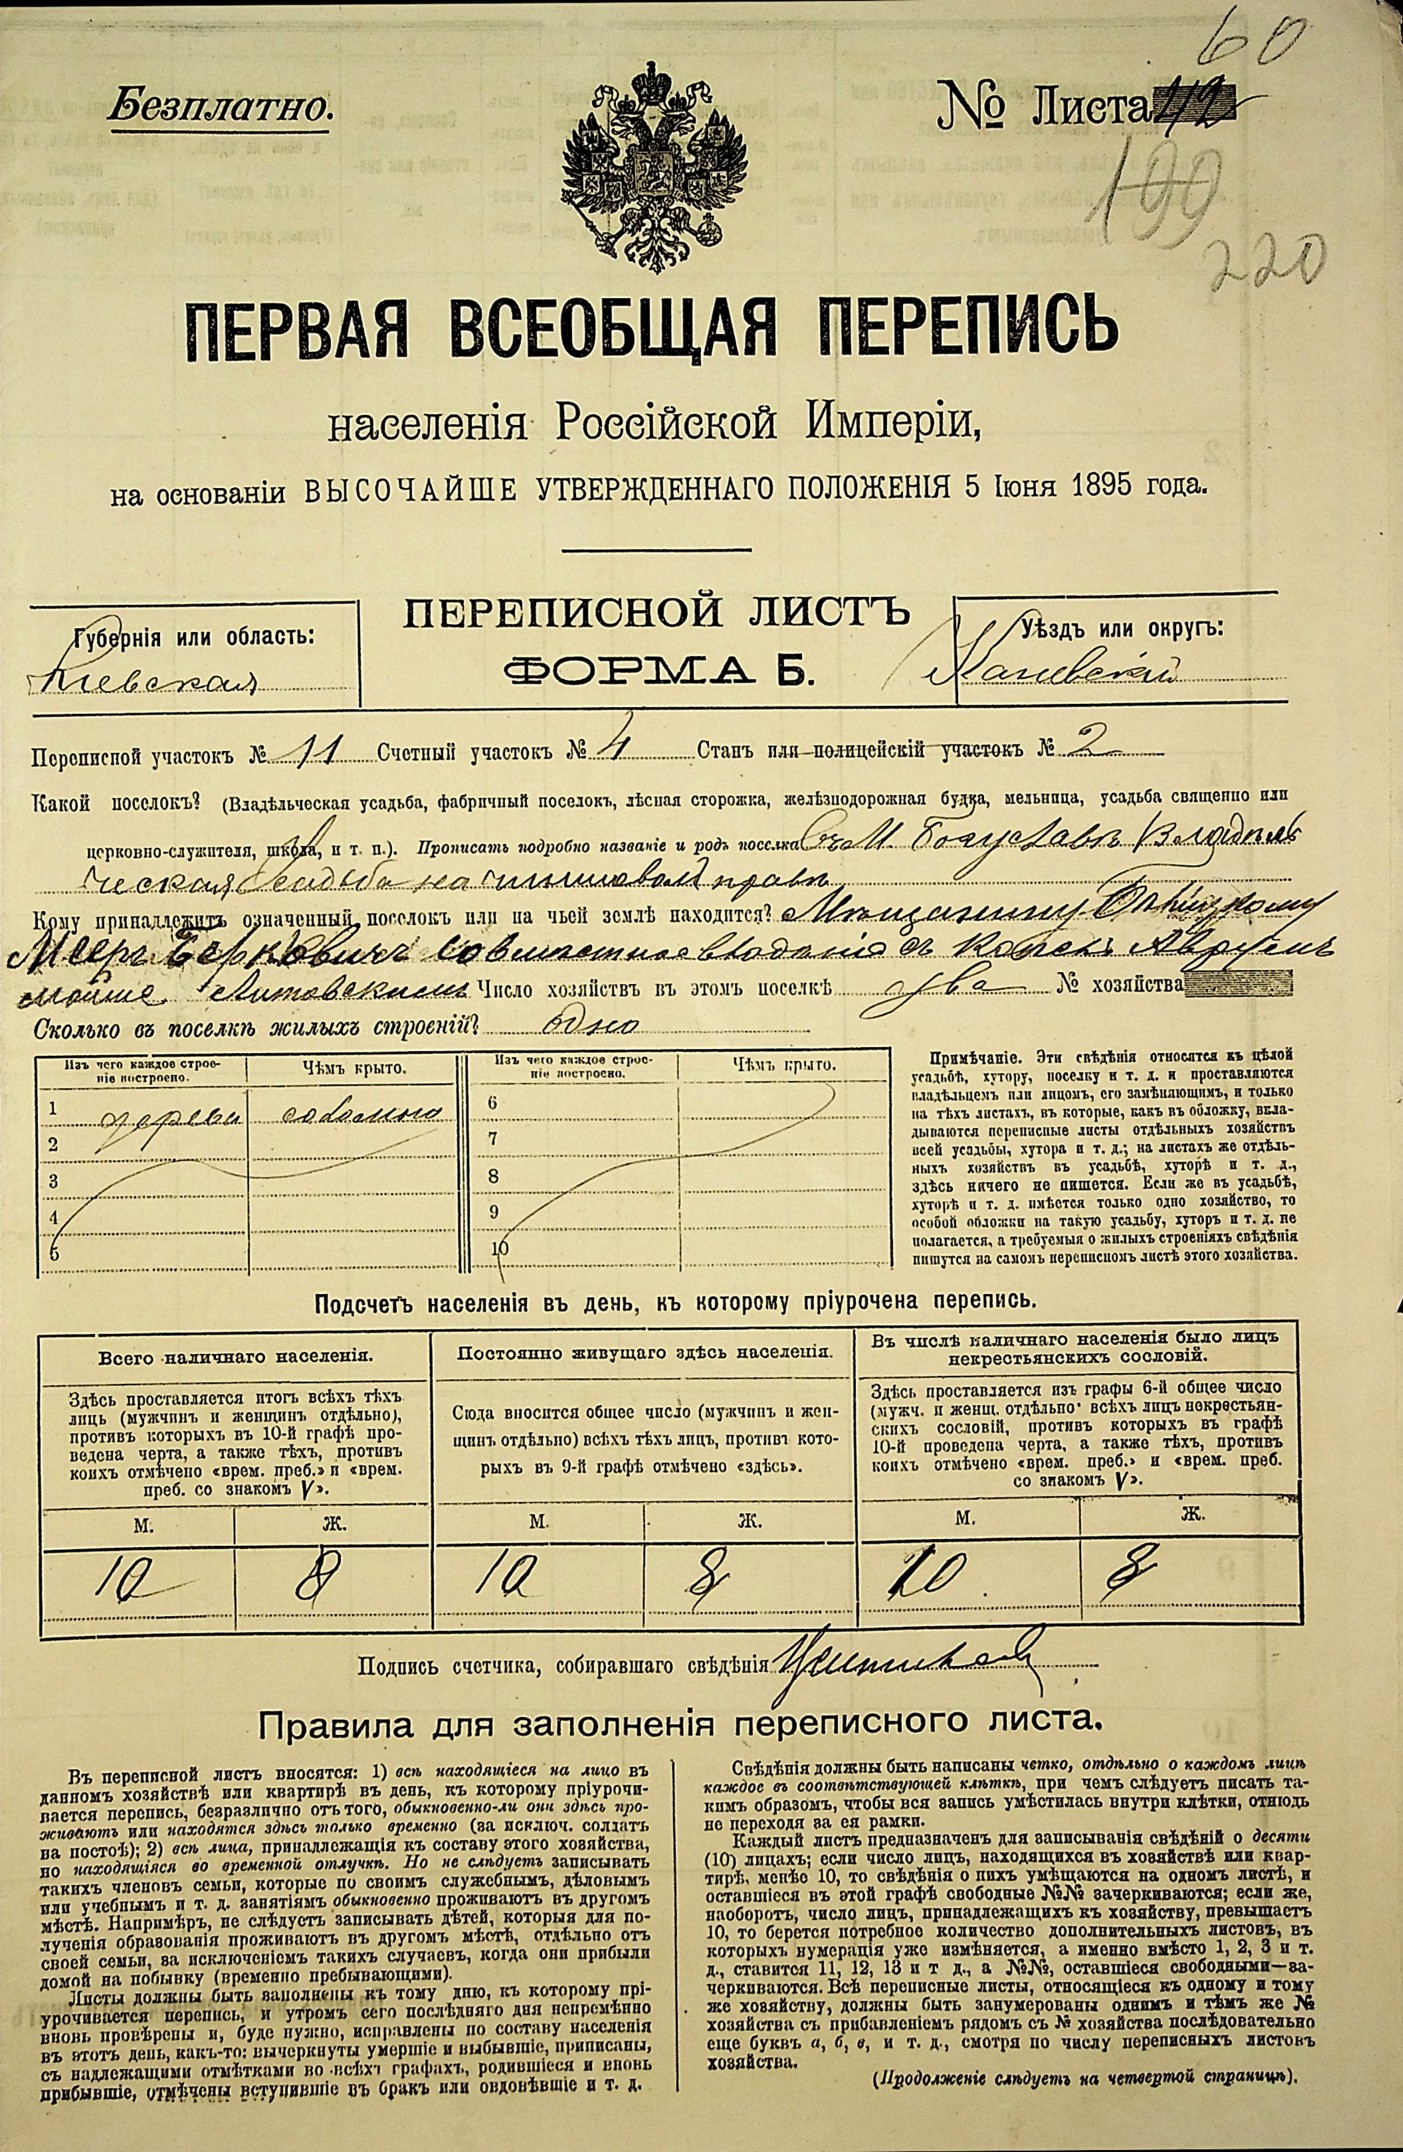 60
Безплатно.
№ Листа 42
199
220
ПЕРВАЯ ВСЕОБЩАЯ ПЕРЕПИСЬ
населенія Россійской Имперіи,
на основаніи ВЫСОЧАЙШЕ УТВЕРЖДЕННАГО ПОЛОЖЕНІЯ 5 Іюня 1895 года.
ПЕРЕПИСНОЙ ЛИСТЪ
ФОРМА Б.
Губернія или область:
Кіевская
Уѣздъ или округъ:
Каневскій
Переписной участокъ № 11 Счетный участокъ № 4 Станъ или полицейскій участокъ № 2
Какой поселокъ? (Владѣльческая усадьба, фабричный поселокъ, лѣсная сторожка, желѣзнодорожная будка, мельница, усадьба священно или
церковно-служителя, школа, и т. п.). Прописать подробно названіе и родъ поселка Въ М. Богуславѣ Владѣль
ческая Усадьба на чиншовом правѣ
Кому принадлежитъ означенный поселокъ или на чьей землѣ находится? Мѣщанину
Берковичъ совместное съ
Литовскимъ Число хозяйствъ въ этомъ поселкѣ два № хозяйства
Сколько въ поселкѣ жилыхъ строеній? одно
Изъ чего каждое строе-
ніе построено.
Чѣмъ крыто.
Изъ чего каждое строе-
ніе построено.
Чѣмъ крыто.
1 дерева соломою 6
2 7
3 8
4 9
5 10
Примѣчаніе. Эти свѣдѣнія относятся къ цѣлой
усадьбѣ, хутору, поселку и т. д. и проставляются
владѣльцемъ или лицомъ, его замѣняющимъ, и только
на тѣхъ листахъ, въ которые, какъ въ обложку, вкла-
дываются переписные листы отдѣльныхъ хозяйствъ
всей усадьбы, хутора и т. д.; на листахъ же отдѣль-
ныхъ хозяйствъ въ усадьбѣ, хуторѣ и т. д.,
здѣсь ничего не пишется. Если же въ усадьбѣ,
хуторѣ и т. д. имѣется только одно хозяйство, то
особой обложки на такую усадьбу, хуторъ и т. д. не
полагается, а требуемыя о жилыхъ строеніяхъ свѣдѣнія
пишутся на самомъ переписномъ листѣ этого хозяйства.
Подсчетъ населенія въ день, къ которому пріурочена перепись.
Всего наличнаго населенія.
Здѣсь проставляется итогъ всѣхъ тѣхъ
лицъ (мужчинъ и женщинъ отдѣльно),
противъ которыхъ въ 10-й графѣ про-
ведена черта, а также тѣхъ, противъ
коихъ отмѣчено «врем. преб.» и «врем.
преб. со знакомъ V».
Постоянно живущаго здѣсь населенія.
Сюда вносится общее число (мужчинъ и жен-
щинъ отдѣльно) всѣхъ тѣхъ лицъ, противъ кото-
рыхъ въ 9-й графѣ отмѣчено «здѣсь».
Въ числѣ наличнаго населенія было лицъ
некрестьянскихъ сословій.
Здѣсь проставляется изъ графы 6-й общее число
(мужч. и женщ. отдѣльно) всѣхъ лицъ некрестьян-
скихъ сословій, противъ которыхъ въ графѣ
10-й проведена черта, а также тѣхъ, противъ
коихъ отмѣчено «врем. преб.» и «врем. преб.
со знакомъ V».
М. Ж. М. Ж. М. Ж.
10 8 10 8 10 8
Подпись счетчика, собиравшаго свѣдѣнія
Правила для заполненія переписного листа.
Въ переписной листъ вносятся: 1) всѣ находящіеся на лицо въ
данномъ хозяйствѣ или квартирѣ въ день, къ которому пріурочи-
вается перепись, безразлично отъ того, обыкновенно-ли они здѣсь про-
живаютъ или находятся здѣсь только временно (за исключ. солдатъ
на постоѣ); 2) всѣ лица, принадлежащія къ составу этого хозяйства,
но находящіяся во временной отлучкѣ. Но не слѣдуетъ записывать
такихъ членовъ семьи, которые по своимъ служебнымъ, дѣловымъ
или учебнымъ и т. д. занятіямъ обыкновенно проживаютъ въ другомъ
мѣстѣ. Напримѣръ, не слѣдуетъ записывать дѣтей, которыя для по-
лученія образованія проживаютъ въ другомъ мѣстѣ, отдѣльно отъ
своей семьи, за исключеніемъ такихъ случаевъ, когда они прибыли
домой на побывку (временно пребывающими).
Листы должны быть заполнены къ тому дню, къ которому прі-
урочивается перепись, и утромъ сего послѣдняго дня непремѣнно
вновь провѣрены и, буде нужно, исправлены по составу населенія
въ этотъ день, какъ-то: вычеркнуты умершіе и выбывшіе, приписаны,
съ надлежащими отмѣтками во всѣхъ графахъ, родившіеся и вновь
прибывшіе, отмѣчены вступившіе въ бракъ или овдовѣвшіе и т. д.
Свѣдѣнія должны быть написаны четко, отдѣльно о каждомъ лицѣ
каждое въ соотвѣтствующей клѣткѣ, при чемъ слѣдуетъ писать та-
кимъ образомъ, чтобы вся запись умѣстилась внутри клѣтки, отнюдь
не переходя за ея рамки.
Каждый листъ предназначенъ для записыванія свѣдѣній о десяти
(10) лицахъ; если число лицъ, находящихся въ хозяйствѣ или квар-
тирѣ, менѣе 10, то свѣдѣнія о нихъ умѣщаются на одномъ листѣ, и
оставшіеся въ этой графѣ свободные №№ зачеркиваются; если же,
наоборотъ, число лицъ, принадлежащихъ къ хозяйству, превышаетъ
10, то берется потребное количество дополнительныхъ листовъ, въ
которыхъ нумерація уже измѣняется, а именно вмѣсто 1, 2, 3 и т.
д., ставится 11, 12, 13 и т д., а №№, оставшіеся свободными—за-
черкиваются. Всѣ переписные листы, относящіеся къ одному и тому
же хозяйству, должны быть занумерованы однимъ и тѣмъ же №
хозяйства съ прибавленіемъ рядомъ съ № хозяйства послѣдовательно
еще буквъ а, б, в, и т. д., смотря по числу переписныхъ листовъ
хозяйства.
(Продолженіе слѣдуетъ на четвертой страницѣ).